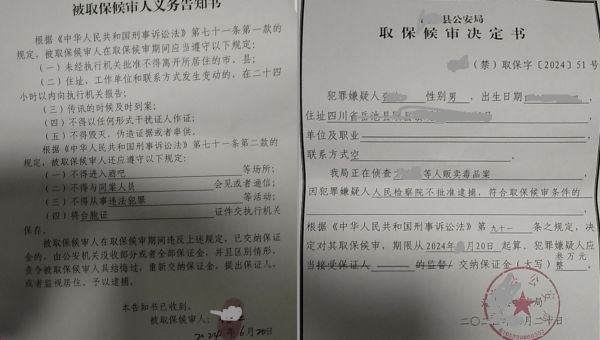 被取保候审人义务告知书
根据《中华人民共和国刑事诉讼法》第七十一条第一款的
规定，被取保候审人在取保候审期间应当遵守以下规定：
（一）未经执行机关批准不得离开所居住的市、县；
（二）住址、工作单位和联系方式发生变动的，在二十四
小时以内向执行机关报告；
（三）传讯的时候及时到案；
（四）不得以任何形式干扰证人作证；
（五）不得毁灭、伪造证据或者串供。
根据《中华人民共和国刑事诉讼法》第七十一条第二款的
规定，被取保候审人还应遵守以下规定：
（一）不得进入酒吧 等场所；
（二）不得与同案人员 会见或者通信；
（三）不得从事违法犯罪 等活动；
（四）将台胞证 证件交执行机关
保存。
被取保候审人在取保候审期间违反上述规定，已交纳保证
金的，由公安机关没收部分或者全部保证金，并且区别情形，
责令被取保候审人具结悔过，重新交纳保证金、提出保证人，
或者监视居住、予以逮捕。
本告知书已收到。
被取保候审人：
2024年6月20日
县公安局
取保候审决定书
（禁）取保字〔2024〕51号
犯罪嫌疑人 性别男，出生日期
住址四川省岳池县
单位及职业
联系方式空
我局正在侦查 等人贩卖毒品案
因犯罪嫌疑人人民检察院不批准逮捕，符合取保候审条件的
根据《中华人民共和国刑事诉讼法》第九十一条之规定，决
定对其取保候审，期限从2024年 月20日起算。犯罪嫌疑人应
当接受保证人 的监督/交纳保证金（大写）叁万元整
公安局
二〇二 月二十日